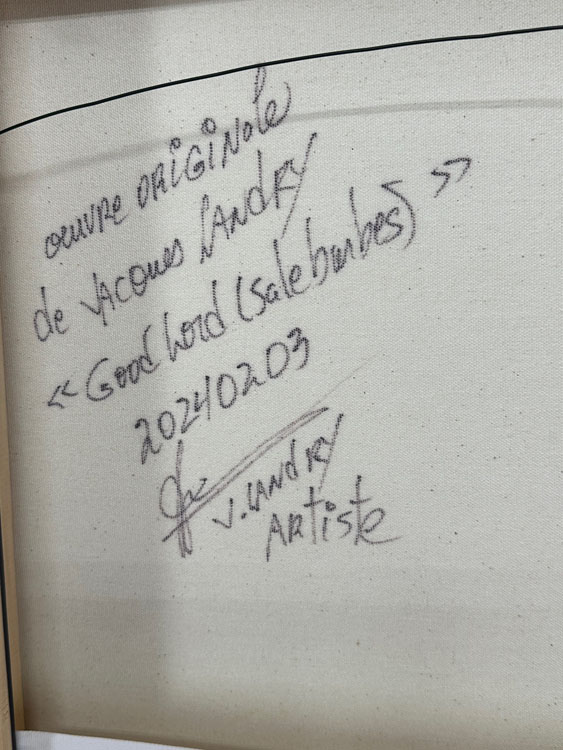 œuvre ORiGiNale
de JACQUES LANDRY
« Good Lord (Salebarbes) »
20240203
J. LANDRY
ARtiste